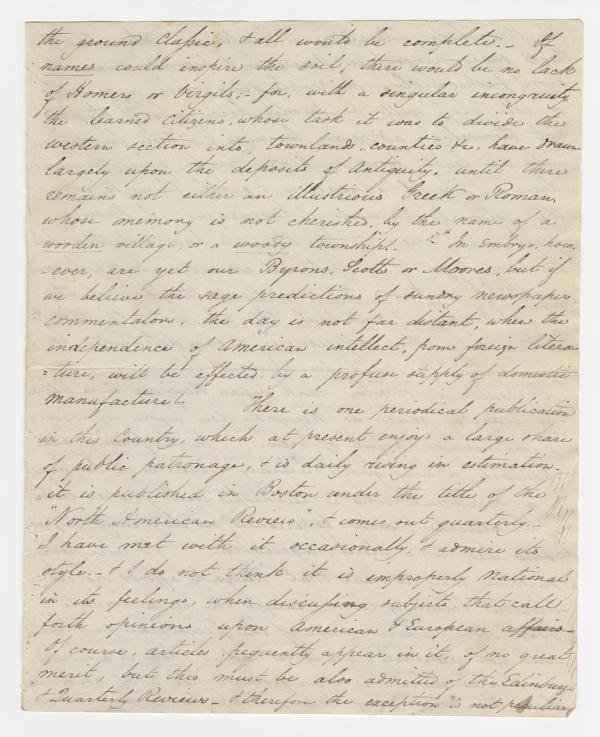 the ground Classic, & all would be complete._ If
names could inspire the soil, there would be no lack
of Homers or Virgils;- for, with a singular incongruity
the learned Citizens, whose task it was to divide the
western section into, townland, counties &c, have drawn
largely upon the deposits of Antiquity, until there
remains not either an illustrious Greek or Roman
whose memory is not cherished, by the name of a
wooden village, or a woody township!_ In Embryo, how-
-ever, are yet our Byrons, Scotts or Moores, but if
we believe the sage predictions of sundry newspaper
commentators, the day is not far distant, when the
independence of American intellect, from foreign litera-
=ture, will be effected by a profuse supply of domestic
manufacture!_ There is one periodical publication
in this Country, which at present enjoys a large share
of public patronage, & is daily rising in estimation_
it is published in Boston under the title of the
"North American Review", & comes out quarterly._
I have met with it occasionally & admire its
style._ & I do not think it is improperly National
in its feelings, when discussing subjects that call
forth opinions upon American & European affairs_
Of course, articles frequently appear in it, of no great
merit, but this must be also admitted of the Edinburgh
& Quarterly Reviews_ & therefore the exception is not peculiar